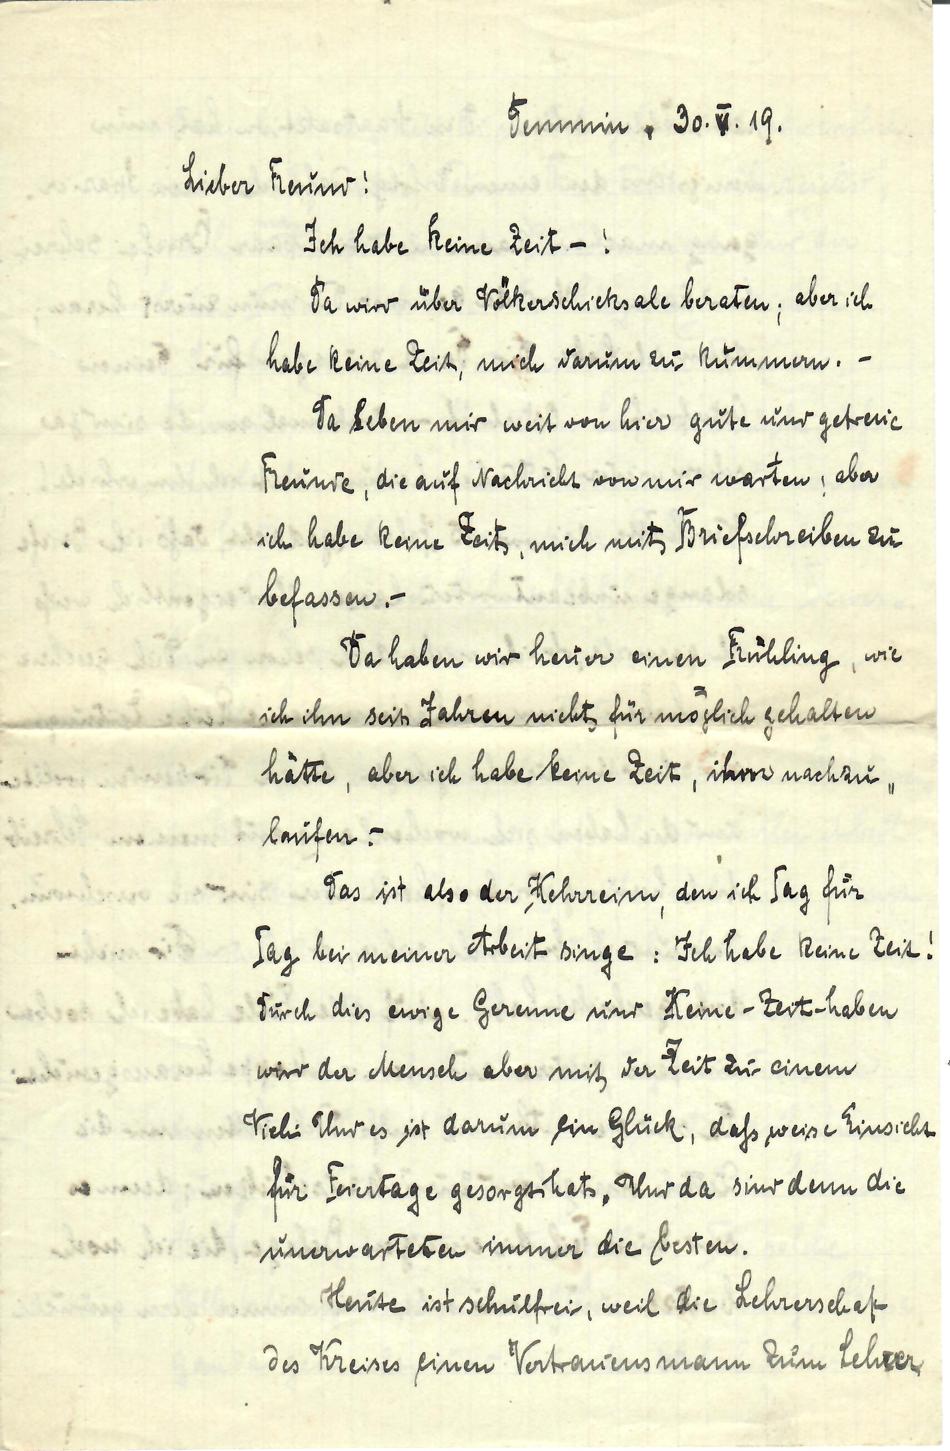 Demmin, 30. V. 19.
Lieber Freund!
Ich habe keine Zeit – !
Da wird über Völkerschicksale beraten; aber ich
habe keine Zeit, mich darum zu kümmern. –
Da leben mir weit von hier gute und getreue
Freunde, die auf Nachricht von mir warten; aber
ich habe keine Zeit, mich mit Briefschreiben zu
befassen. –
Da haben wir heuer einen Frühling, wie
ich ihn seit Jahren nicht für möglich gehalten
hätte, aber ich habe keine Zeit, ihm nachzu„
laufen. –
Das ist also der Kehrreim, den ich Tag für
Tag bei meiner Arbeit singe: Ich habe keine Zeit!
Durch dies ewige Gerenne und Keine-Zeit-haben
wird der Mensch aber mit der Zeit zu einem
Vieh. Und es ist darum ein Glück, daß weise Einsicht
für Feiertage gesorgt hat. Und da sind denn die
unerwarteten immer die besten.
Heute ist schulfrei, weil die Lehrerschaft
des Kreises einen Vertrauensmann zum Lehrer